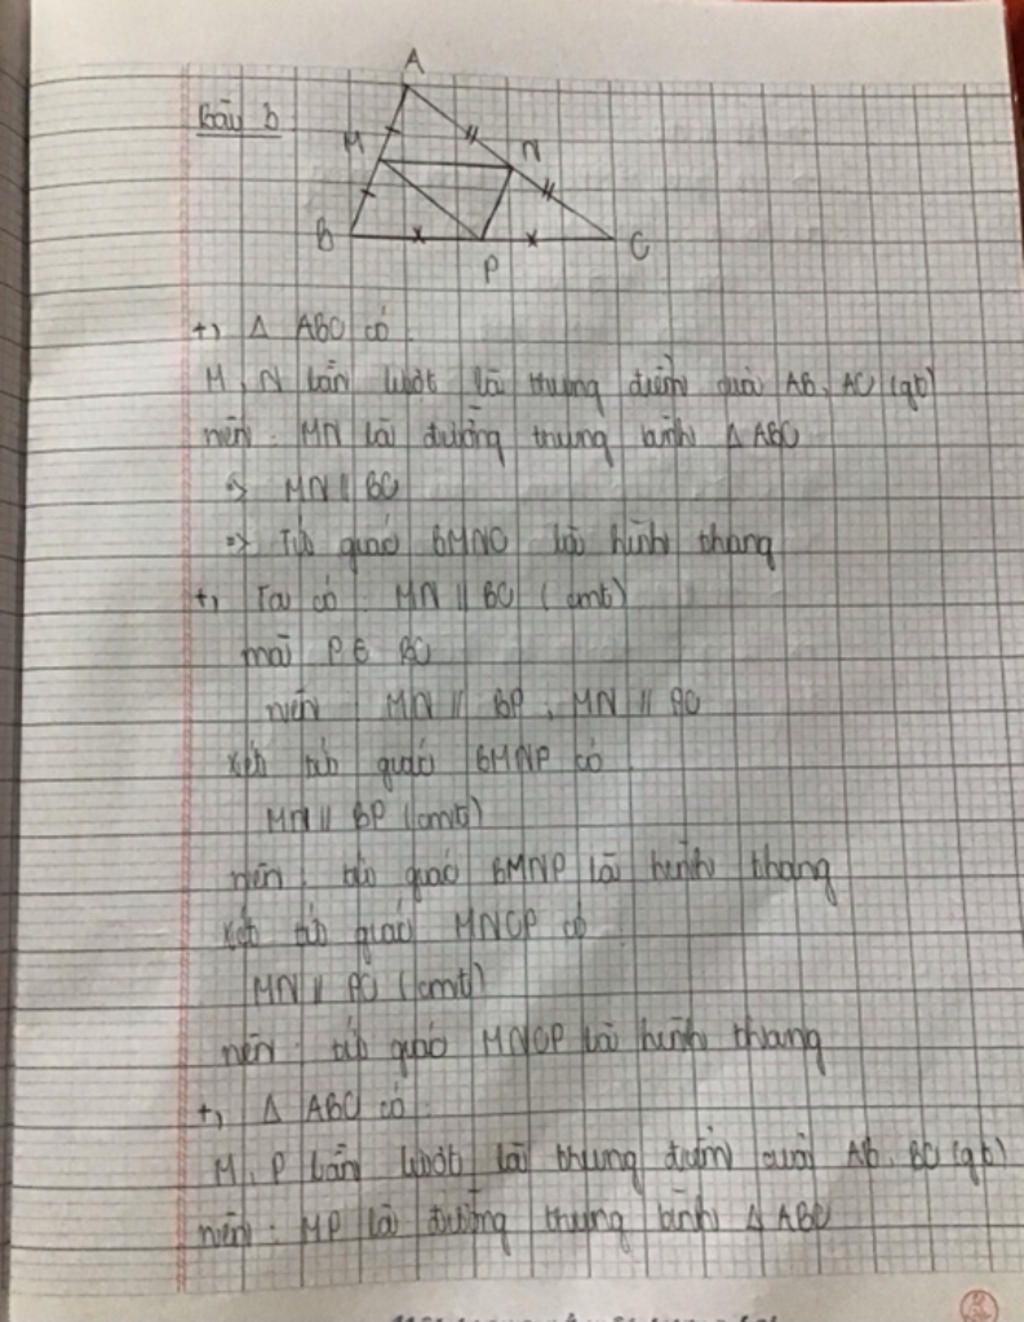 A
Bài 6
M
N
B
C
P
+, Δ ABC có
M, N lần lượt là trung điểm của AB, AC (gt)
nên : MN là đường trung bình Δ ABC
=> MN // BC
=> Tứ giác BMNC là hình thang
+, Ta có : MN // BC (cmt)
mà P ∈ BC
nên MN // BP, MN // PC
Xét tứ giác BMNP có
MN // BP (cmt)
nên : tứ giác BMNP là hình thang
Xét tứ giác MNCP có
MN // PC (cmt)
nên : tứ giác MNCP là hình thang
+, Δ ABC có :
M, P lần lượt là trung điểm của AB, BC (gt)
nên : MP là đường trung bình Δ ABC